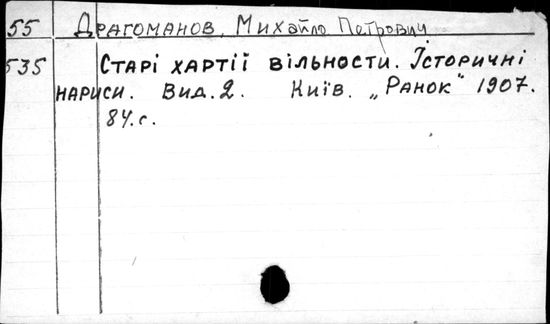 55 Драгоманов, Михайло Петрович
535 Старі хартії вільности. Історичні
нариси. Вид. 2. Київ. „Ранок“ 1907.
84.с.